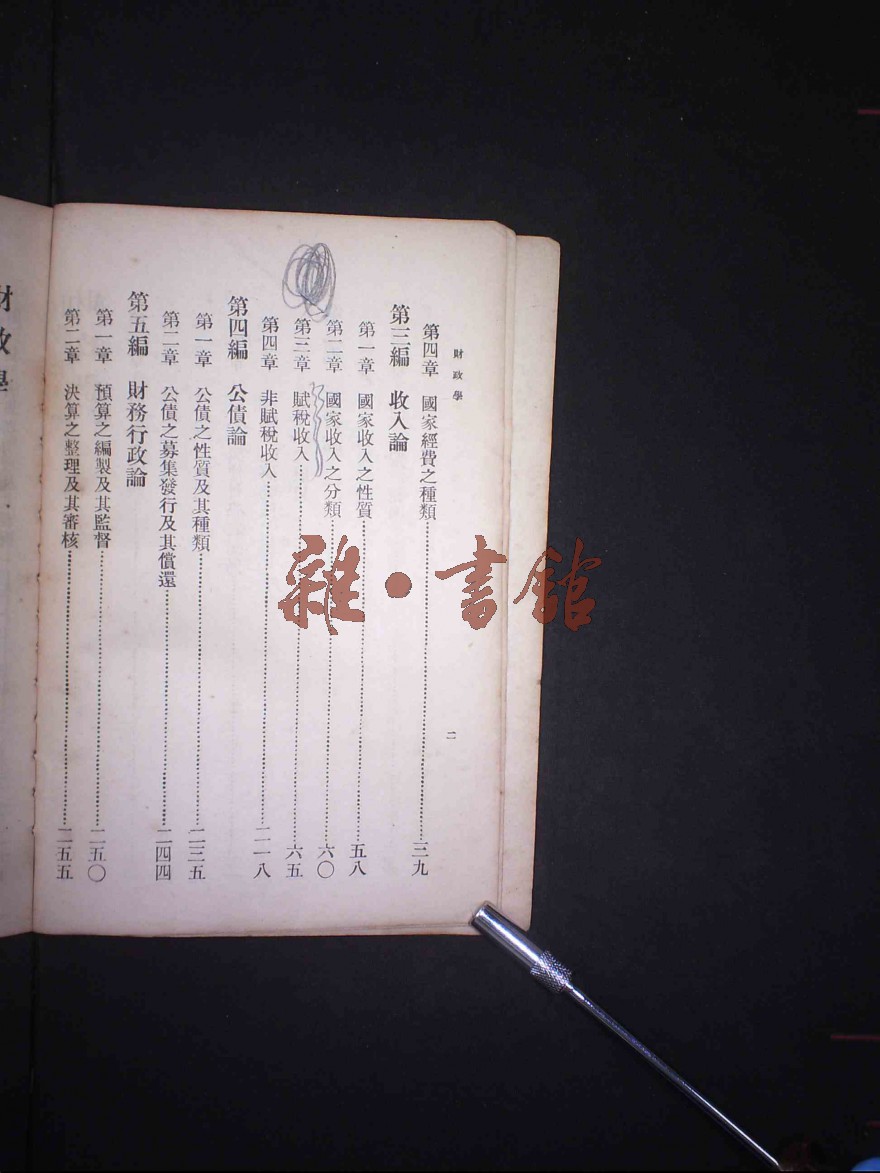 財政學
二
第四章 國家經費之種類……三九
第三編 收入論
第一章 國家收入之性質……五八
第二章 國家收入之分類……六〇
第三章 賦稅收入……六五
第四章 非賦稅收入……二一八
第四編 公債論
第一章 公債之性質及其種類……二三五
第二章 公債之募集發行及其償還……二四四
第五編 財務行政論
第一章 預算之編製及其監督……二五〇
第二章 決算之整理及其審核……二五五
財政學
雜·書館